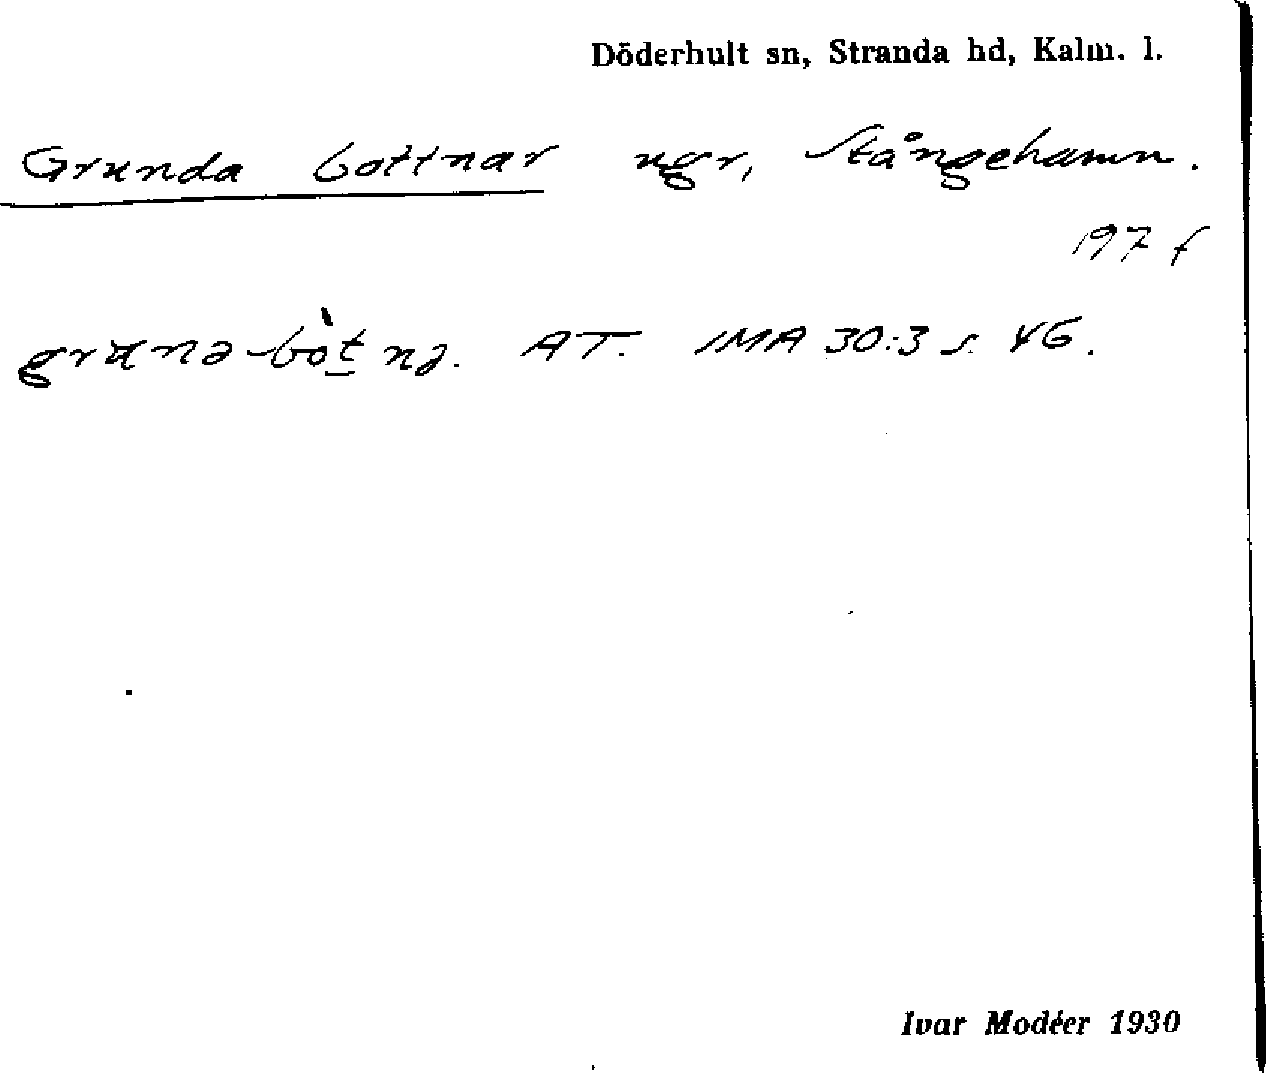 Döderhult sn, Stranda hd, Kalm. l.
Grunda bottnar ugr, Stångehamn.
197 f
grunə-bòt nə. AT. IMA 30:3 s. 46.
Ivar Modéer 1930